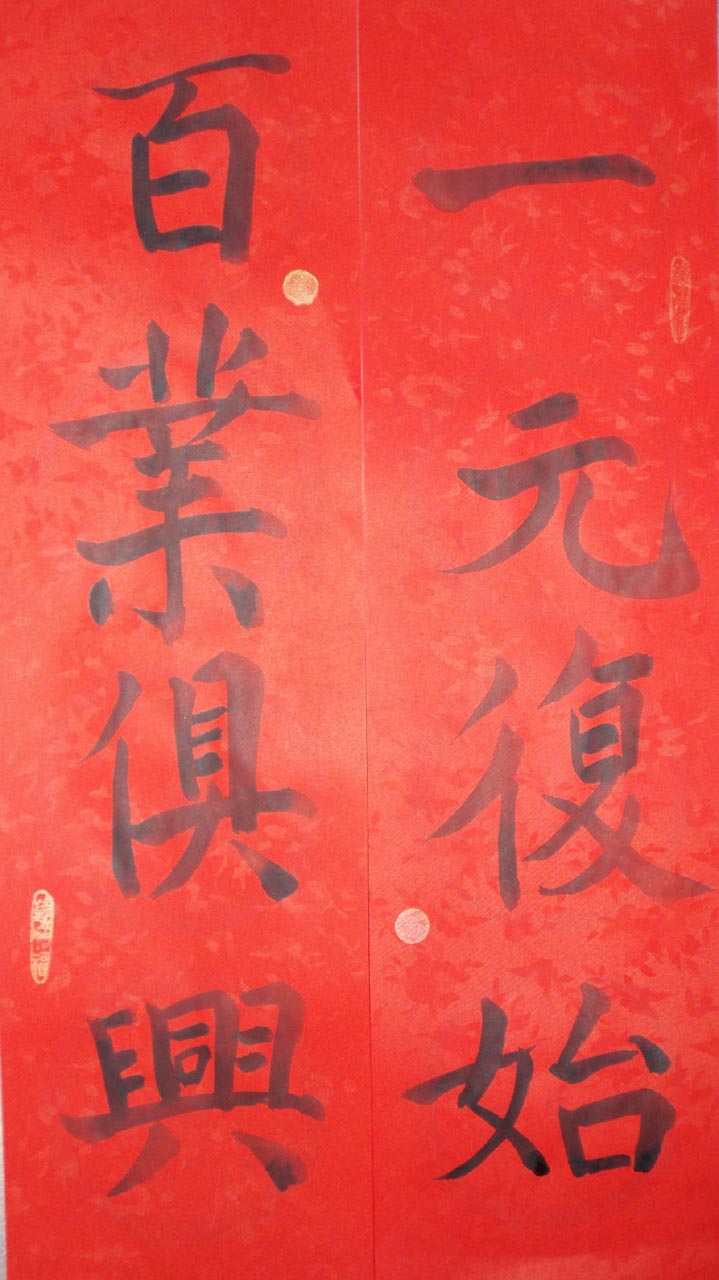 一元復始
百業俱興